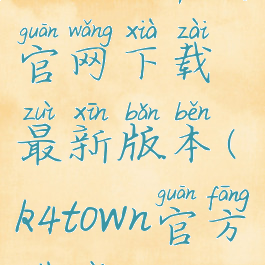 guān wǎng xià zài
官网下载
zuì xīn bǎn běn
最新版本(
guān fāng
k4town官方